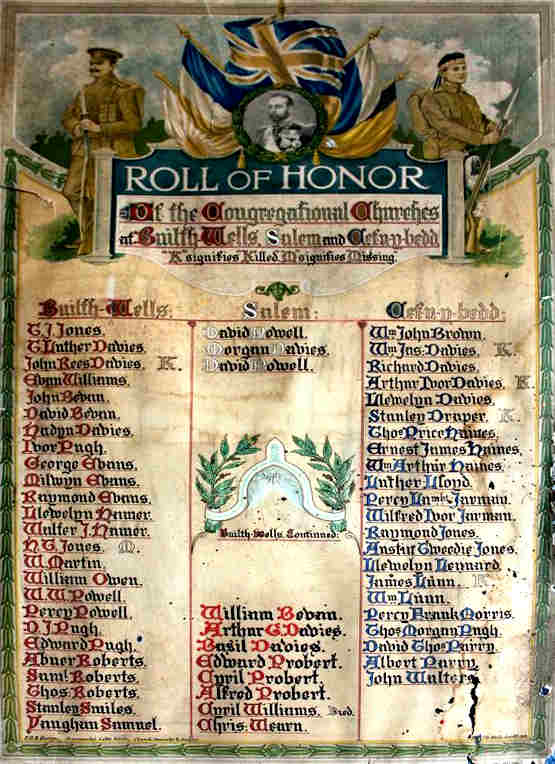 ROLL OF HONOR
Of the Congregational Churches
at Builth-Wells, Salem and Cefn-y-bedd.
"K" signifies Killed, M signifies Missing.
Builth-Wells:
T. J. Jones.
T. Luther Davies.
John Rees Davies. K.
Evan Williams.
John Bevan.
David Bevan.
Hadyn Davies.
Ivor Pugh.
George Evans.
Milwyn Evans.
Raymond Evans.
Llewelyn Hamer.
Walter J. Hamer.
H. T. Jones. M.
W. Martin.
William Owen.
W. W. Powell.
Percy Powell.
D. J. Pugh.
Edward Pugh.
Abner Roberts.
Saml. Roberts.
Thos. Roberts.
Stanley Smiles.
Vaughan Samuel.
Salem:
David Powell.
Morgan Davies.
David Howell.
Builth-Wells, Continued:
William Bevan.
Arthur G. Davies.
Basil Davies.
Edward Probert.
Cyril Probert.
Alfred Probert.
Cyril Williams. Died.
Chris: Wearn.
Cefn-y-bedd:
Wm John Brown.
Wm Jas: Davies. K.
Richard Davies.
Arthur Ivor Davies. K.
Llewelyn Davies.
Stanley Draper. K.
Thos Price Haines.
Ernest James Haines.
Wm Arthur Haines.
Luther Lloyd.
Percy Jarman.
Wilfred Ivor Jarman.
Raymond Jones.
Anslin Tweedie Jones.
Llewelyn Lennard.
James Lunn. K
Wm Lunn.
Percy Frank Morris.
Thos Morgan Pugh.
David Thos Parry.
Albert Parry.
John Walters.